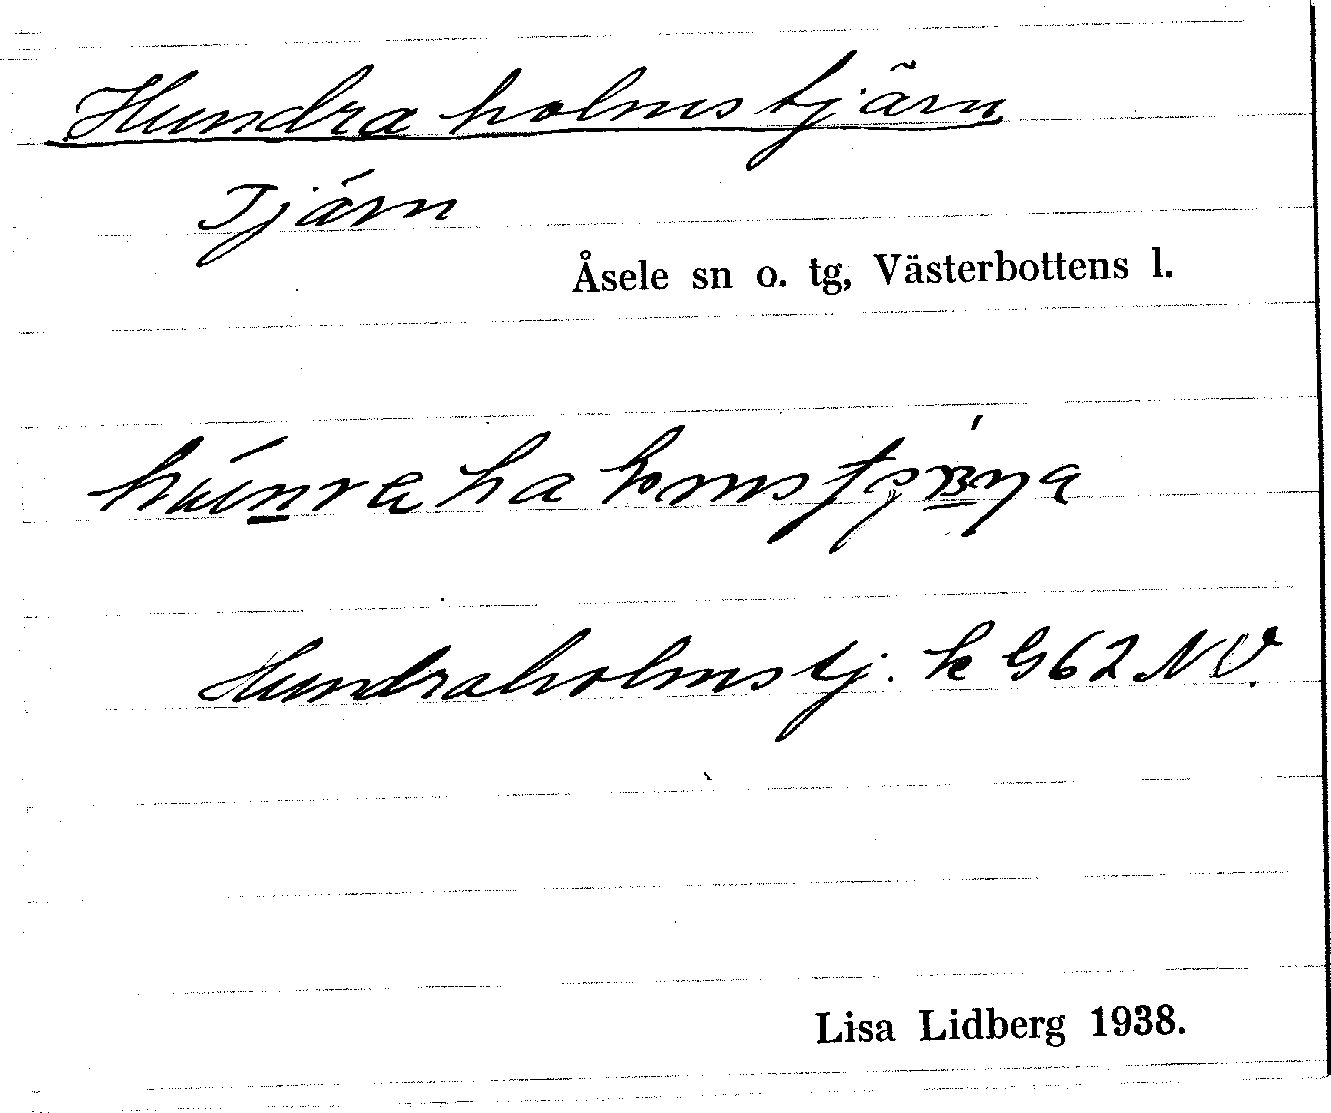 Hundraholmstjärn
Tjärn
Åsele sn o. tg, Västerbottens l.
Hundraholmstj. k G62 NV.
Lisa Lidberg 1938.